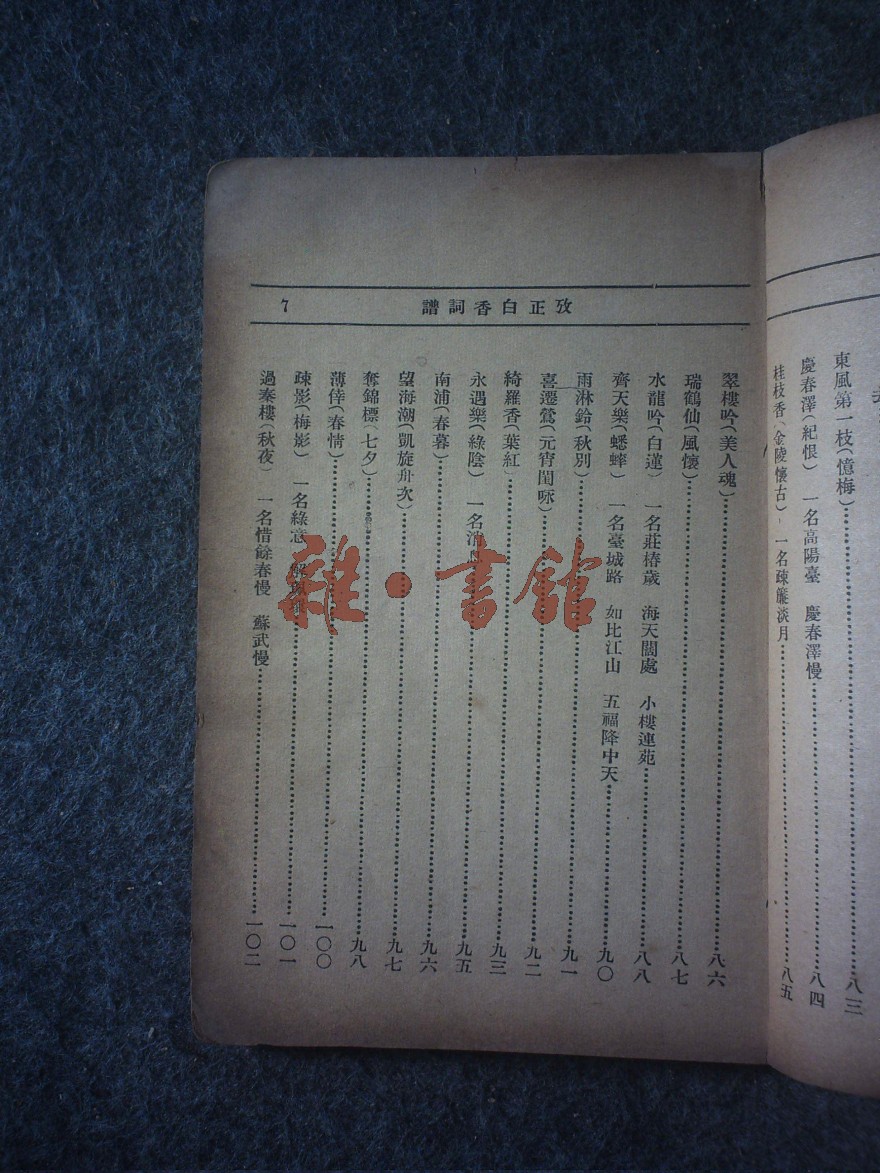 東風第一枝(憶梅)……八三
慶春澤(紀恨) 一名高陽臺 慶春澤慢……八四
桂枝香(金陵懷古) 一名疎簾淡月……八五
7 攷正白香詞譜
翠樓吟(美人魂)……八六
瑞鶴仙(風懷)……八七
水龍吟(白蓮) 一名莊椿歲 海天闊處 小樓連苑……八八
齊天樂(蟋蟀) 一名臺城路 如比江山 五福降中天……九〇
雨淋鈴(秋別)……九一
喜遷鶯(元宵閨咏)……九二
綺羅香(葉紅)……九三
永遇樂(綠陰) 一名消……九五
南浦(春暮)……九六
望海潮(凱旋舟次)……九七
奪錦標(七夕)……九八
薄倖(春情)……一〇〇
疎影(梅影) 一名綠意 解……一〇一
過秦樓(秋夜) 一名惜餘春慢 蘇武慢……一〇二
雜·書舘